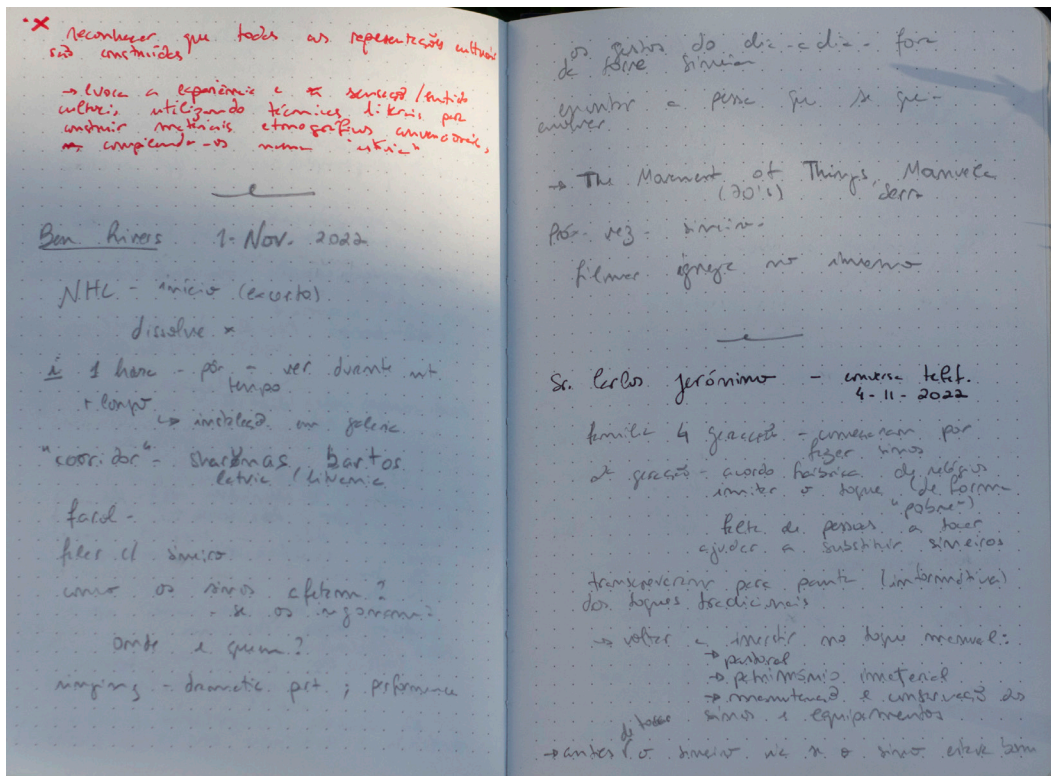 x reconhecer que todas as representações culturais
são construídas
→ evoca a experiência e sensação/sentido
cultural, utilizando técnicas para
construir materiais etnográficos convencionais,
compilando-os numa
Ben Rivers 1-Nov. 2022
NHL - início (excerto)
dissolve x
1 hora - pôr - ver durante mt
tempo
+ longo
↳ instalação em galeria
"corridor" - sharunas bartos
latvia / lituania
farol -
falar c/ sineiro
como os sinos afetam?
- se os ignoram?
onde e quem?
ringing - dramatic part ; performance
os gestos do dia-a-dia - fora
da torre sineira
encontrar a pessoa que se quer
envolver
→ The Movement of Things, Manuela
(70's) Serra
Próx. vez - sineiro -
filmar igreja no inverno
Sr. Carlos Jerónimo - conversa telef.
4-11-2022
família 4 gerações - começaram por
fazer sinos
geração - acordo fábrica de relógios
imitar o toque (de forma
"pobre")
falta de pessoas a tocar
ajudar a substituir sineiros
transcreveram para pauta (informática)
dos toques tradicionais
→ voltar a investir no toque manual:
→ pastoral
→ património imaterial
→ manutenção e conservação dos
sinos e equipamentos
→ antes o sineiro via se o sino estava bem